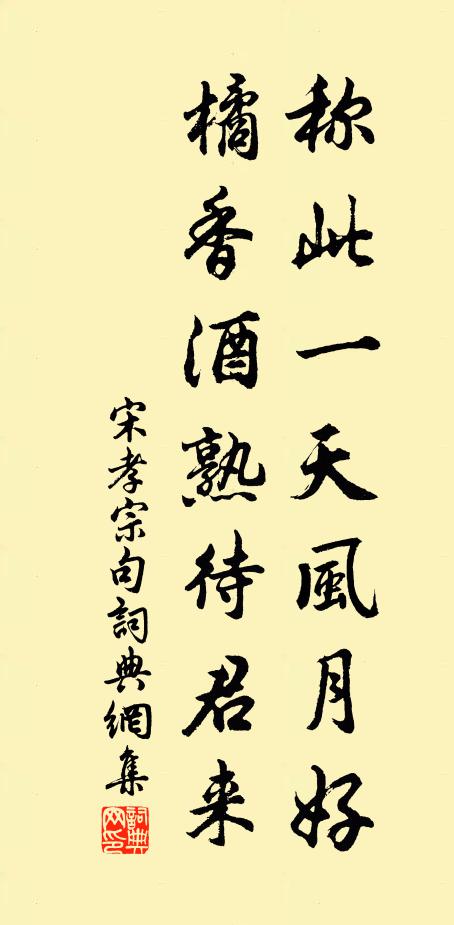 称此一天風月好
橘香酒熟待君来
宋孝宗句詞典網集
詞典
网印